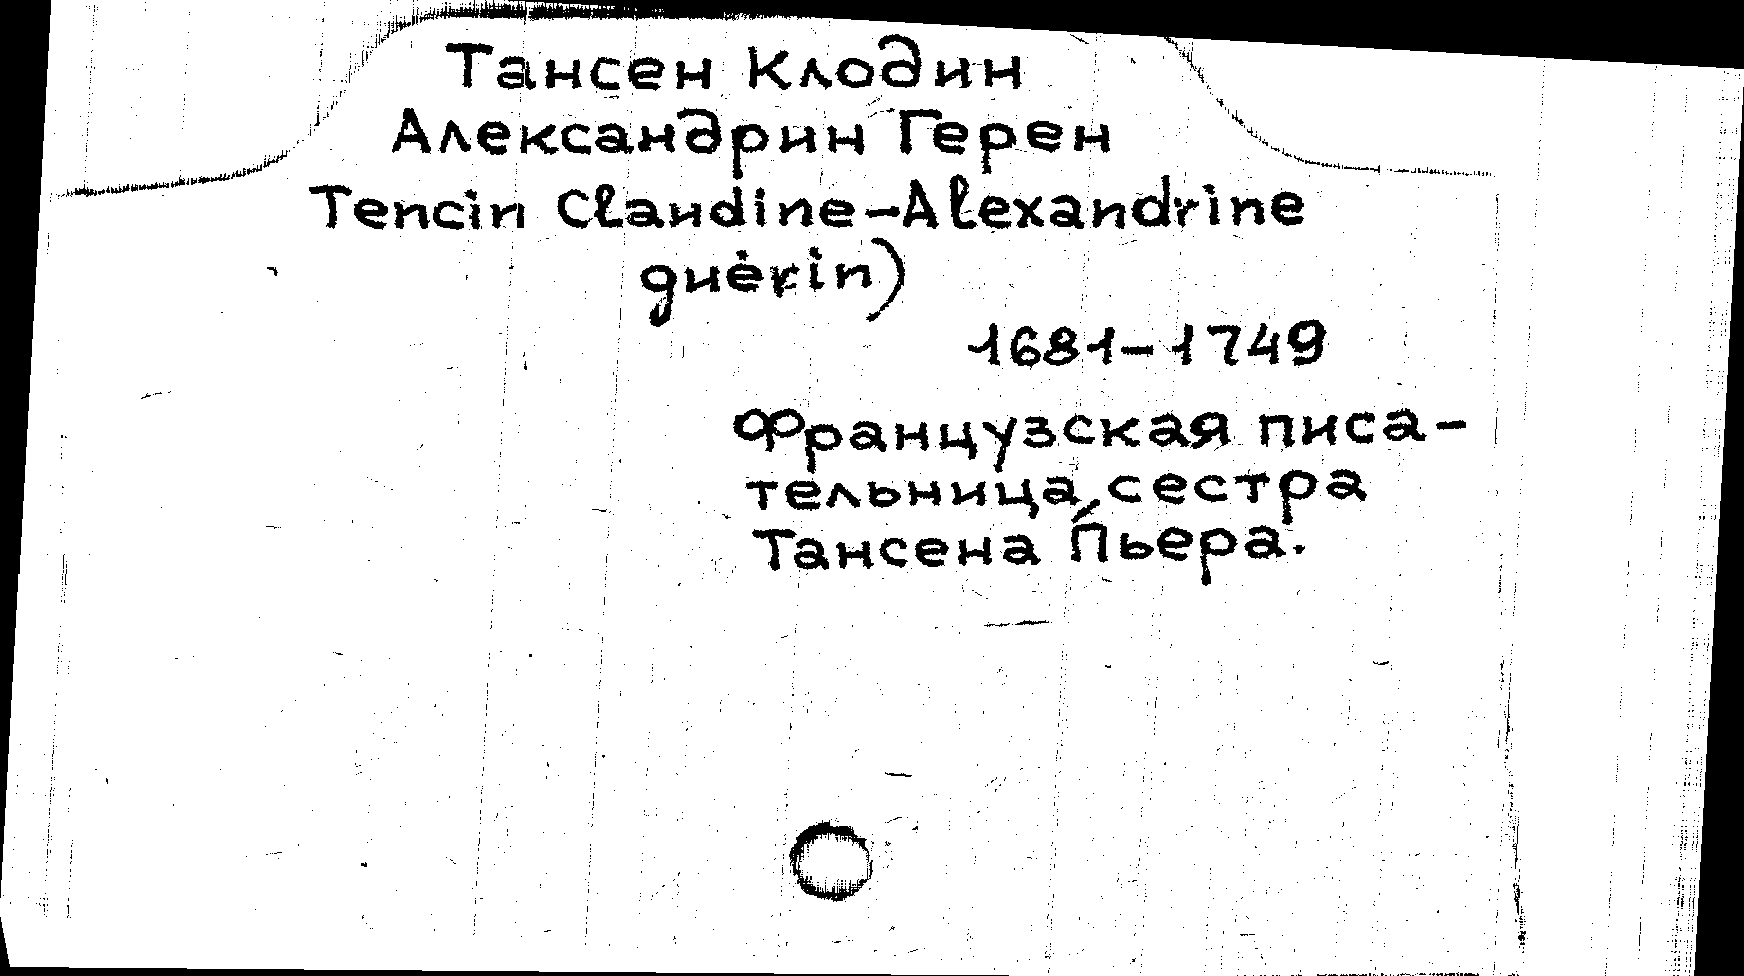 Тансен Клодин
Александрин Герен
Tencin Claudine-Alexandrine
guèrin)
1681-1749
Французская писа-
тельница, сестра
Тансена Пьера.